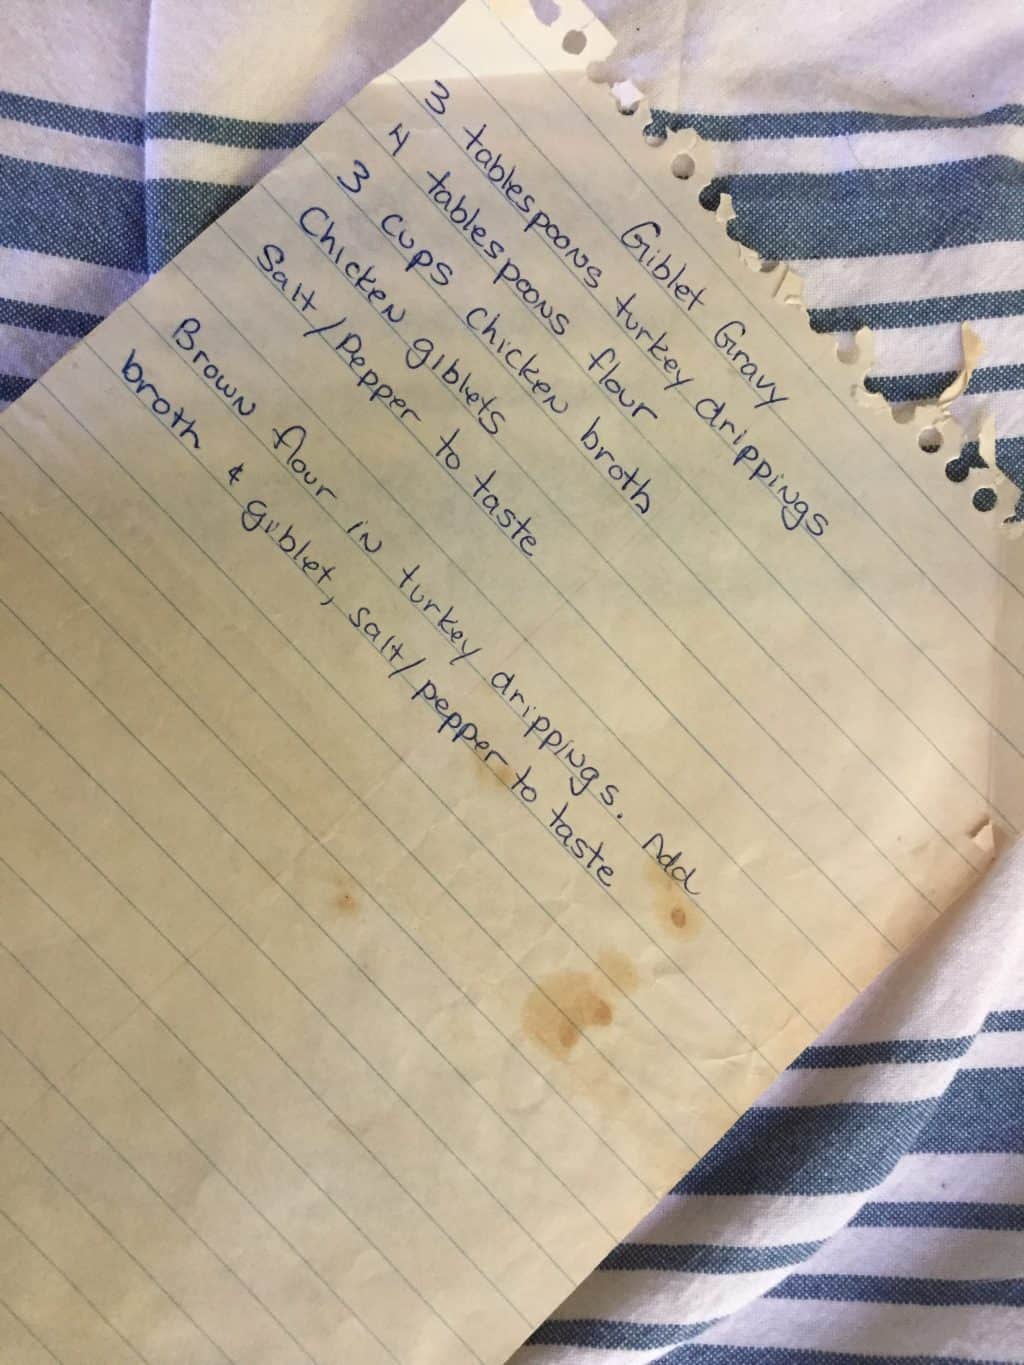 Giblet Gravy
3 tablespoons turkey drippings
4 tablespoons flour
3 cups chicken broth
Chicken giblets
Salt/Pepper to taste
Brown flour in turkey drippings. Add
broth & giblet, salt/pepper to taste